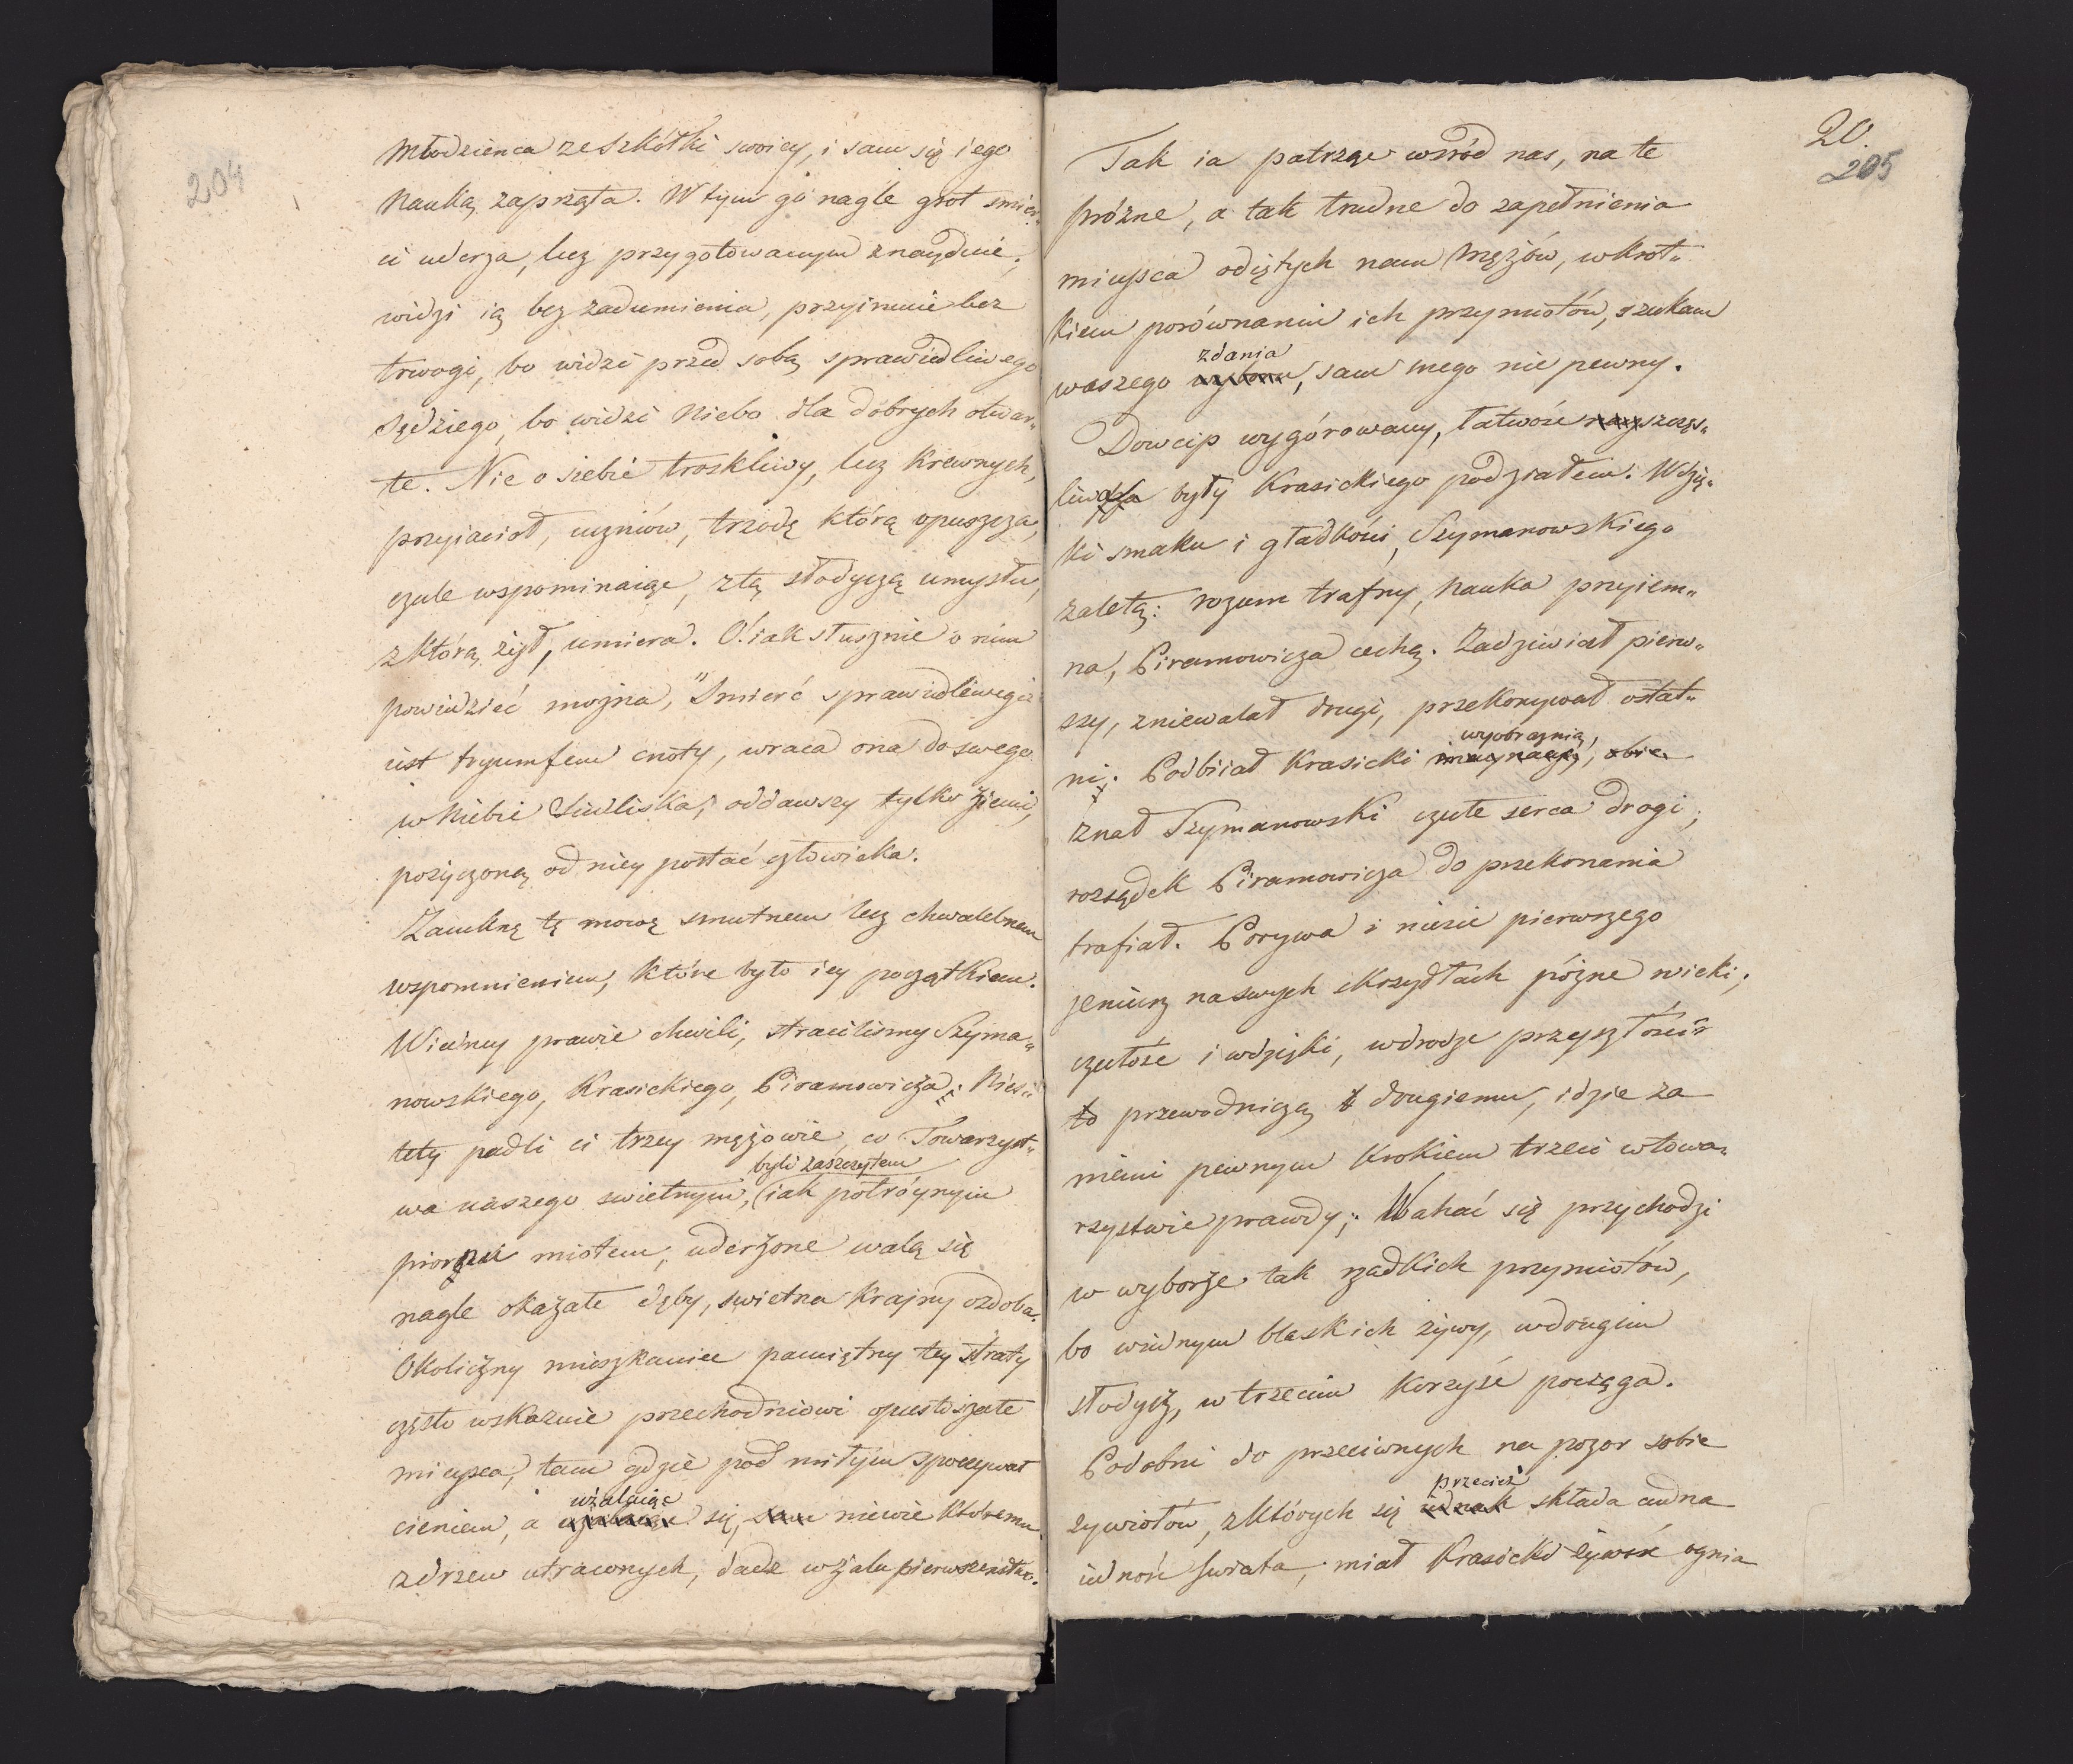 204
Młodzienca ze szkółki swoiey, i sam się iego
Nauką zaprząta. W tym go nagle grot smier„
ci uderza, lecz przygotowanym znayduie;
widzi ią bez zadumienia, przyimuie bez
trwogi, bo widzi przed sobą sprawiedliwego
Sędziego, bo widzi Niebo dla dobrych otwar„
te. Nie o siebie troskliwy, lecz Krewnych,
przyiacioł, uczniów, trzodę którą opuszcza,
czule wspominaiąc, z tą słodyczą umysłu,
z którą żył, umiera. O! iak słusznie o nim
powiedzieć można, "Smierć sprawiedliwego
iest tryumfem cnoty, wraca ona do swego
w Niebie Siedliska, oddawszy tylko ziemi,
pożyczoną od niey postać człowieka.
Zamknę tę mowę smutnem lecz chwalebnem
wspomnieniem, które było iey początkiem.
W iedney prawie chwili, straciliśmy Szyma„
nowskiego, Krasickiego, Piramowicza; Nies„
tety padli ci trzey mężowie, co Towarzyst„
byli zaszczytem
wa naszego swietnym, (iak potróynym
piorunu miotem, uderzone walą się
nagle okazałe dęby, swietna Krainy ozdoba.
Okoliczny mieszkaniec pamiętny tey straty
często wskazuie przechodniowi opustoszałe
mieysca, tam gdzie pod miłym spoczywał
użalaiąc
cieniem, a się, niewie któremu
z drzew utraconych, dadz w żalu pierwszeństwo.
20.
205
Tak ia patrząc wśród nas, na te
próżne, a tak trudne do zapełnienia
mieysca odiętych nam Mężów, w krot„
kiem porównaniu ich przymiotów, szukam
zdania
waszego wyboru, sam mego nie pewny.
Dowcip wygórowany, łatwość nayszczęś„
liwsza były Krasickiego podziałem: Wdzię„
ki smaku i gładkości, Szymanowskiego
zaletą: rozum trafny, Nauka przyiem„
na, Piramowicza cechą. Zadziwiał pierw„
szy, zniewalał drugi, przekonywał ostat„
wyobraznią,
ni; Podbiiał Krasicki imaynacyą, obie„
znał Szymanowski czułe serca drogi;
rozsądek Piramowicza do przekonania
trafiał. Porywa i niesie pierwszego
jeniusz na swych skrzydłach pózne wieki;
czułość i wdzięki, w drodze przyszłości
to przewodniczą drugiemu, idzie za
niemi pewnym krokiem trzeci w towa„
rzystwie prawdy; Wahać się przychodzi
w wyborze tak rzadkich przymiotów,
bo w iednym blask ich żywy, w drugim
słodycz, w trzecim korzyść pociąga.
Podobni do przeciwnych na pozor sobie
przecież
żywiołów, z których się iednak składa cudna
iedność świata, miał Krasicki żywość ognia